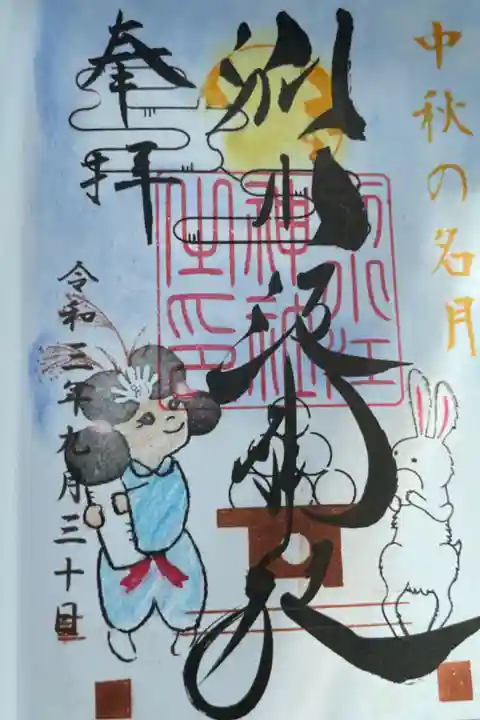 中秋の名月
別小江神社
奉拝
令和三年九月三十日